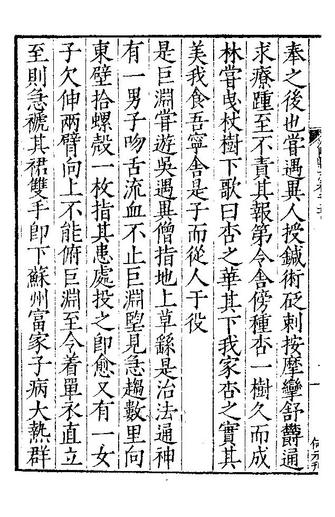 奉之後也嘗遇異人授鍼術砭刺按摩攣舒欝通
求療踵至不責其報第令舍傍種杏一樹久而成
林嘗曳杖樹下歌曰杏之華其下我家杏之實其
美我食吾寧舍是子而從人于役
是巨淵嘗遊吳遇異僧指地上草繇是治法通神
有一男子吻舌流血不止巨淵望見急趨數里向
東壁拾螺殼一枚指其患處投之即愈又有一女
子欠伸兩臂向上不能俯巨淵至令着單衣直立
至則急褫其裙雙手即下蘇州富家子病大熱群